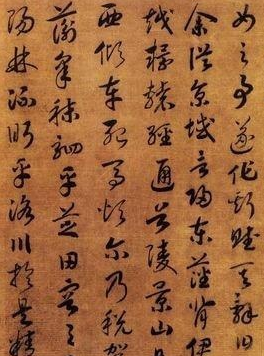 女之事遂作斯賦其辭曰
余從京域言歸東藩背伊
越轘轅經通谷陵景山日
西傾車殆馬煩爾乃稅駕
蘅皋秣駟乎芝田容與
陽林流眄乎洛川於是精